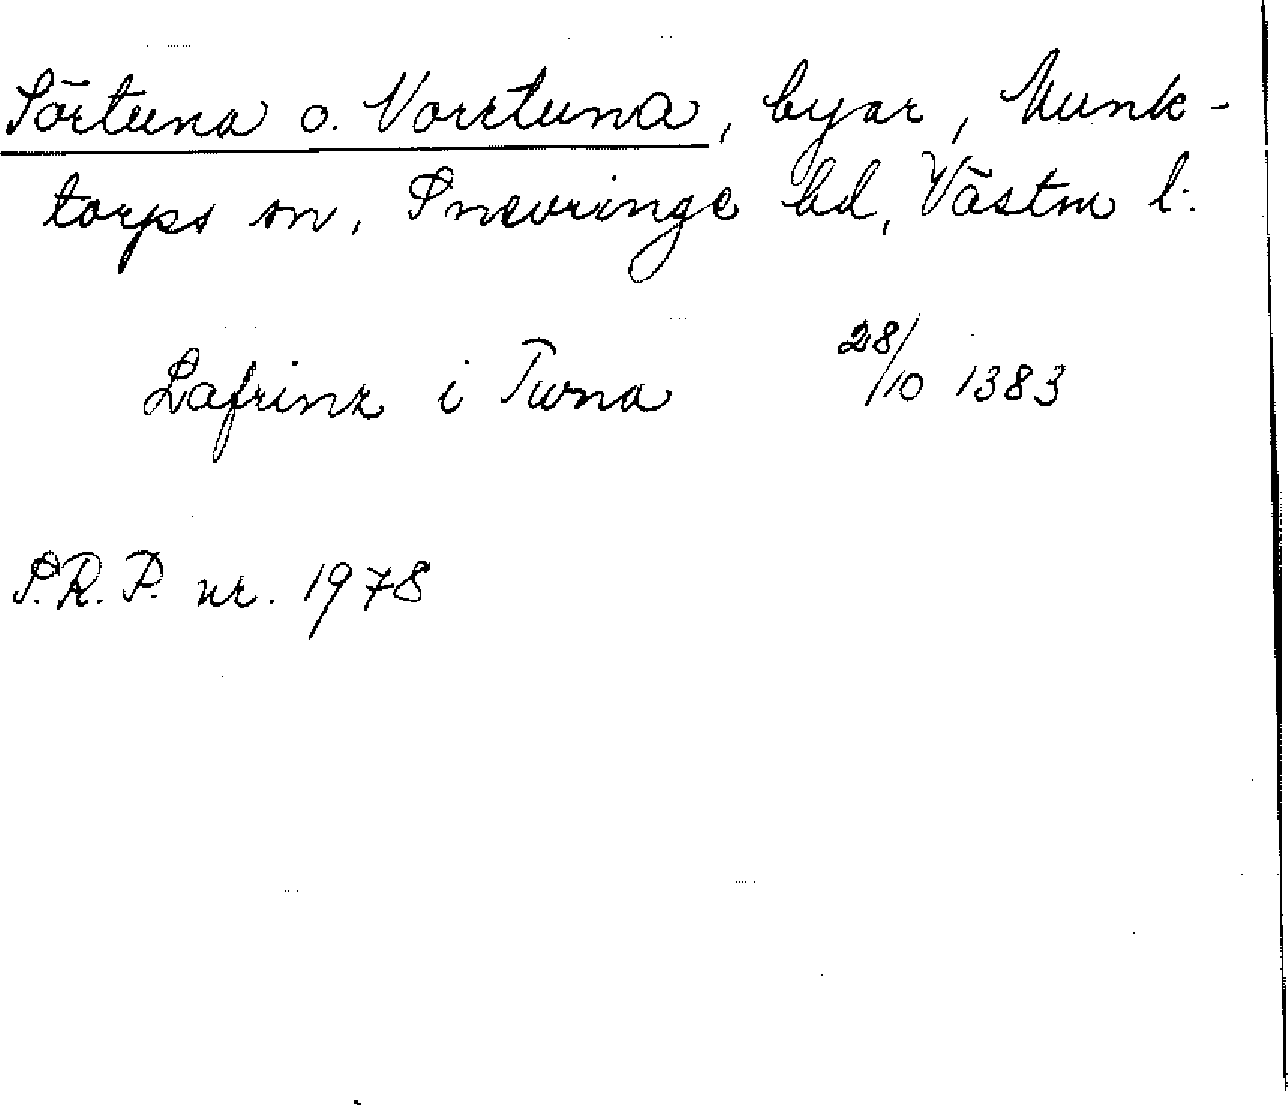 Sörtuna o. Norrtuna, byar, Munk-
torps sn, Snevringe hd, Västm l.
Lafrinz i Twna 28/10 1383
S.R.P. nr. 1978